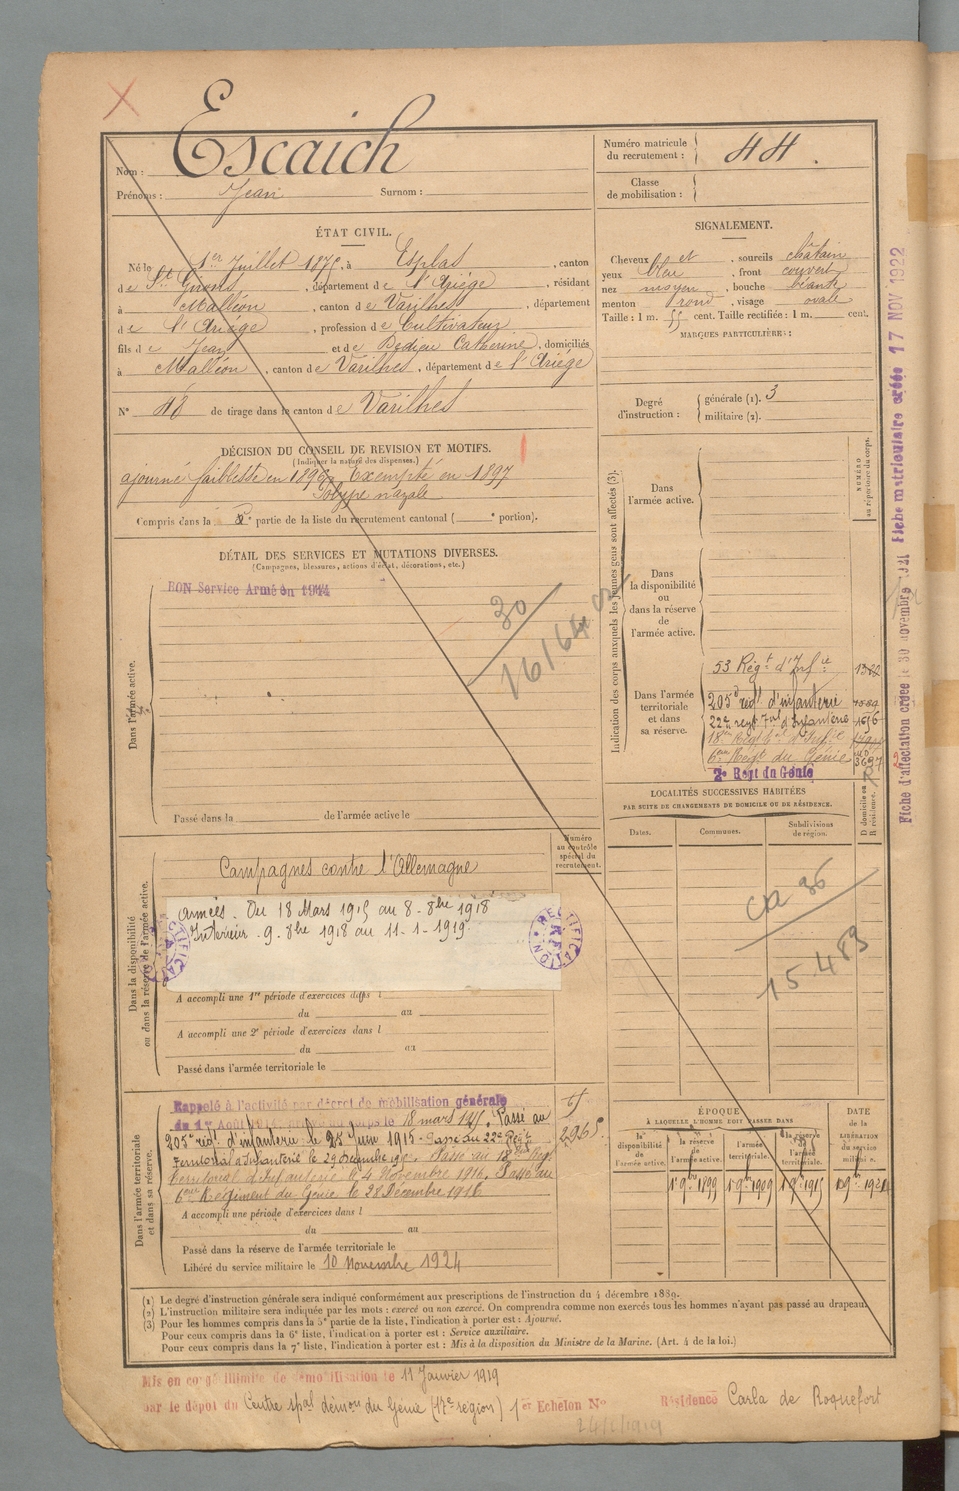 Escaich
Nom :
Prénoms : Jean Surnom :
Numéro matricule du recrutement : 44.
Classe de mobilisation :
ÉTAT CIVIL.
Né le 1er Juillet 1875, à Esplas, canton
de St Girons, département de l'Ariège, résidant
à Malléon, canton de Varilhes, département
de l'Ariège, profession de Cultivateur
fils de Jean et de Dedieu Catherine, domiciliés
à Malléon, canton de Varilhes, département de l'Ariège
N° 48 de tirage dans le canton de Varilhes
SIGNALEMENT.
Cheveux et sourcils châtain
yeux bleu, front couvert
nez moyen, bouche béante
menton rond, visage ovale
Taille : 1 m. 55 cent. Taille rectifiée : 1 m. cent.
MARQUES PARTICULIÈRES :
Degré d'instruction : générale (1). 3
militaire (2).
DÉCISION DU CONSEIL DE REVISION ET MOTIFS.
(Indiquer la nature des dispenses.)
ajourné faiblesse en 1896, Exempté en 1897
Polype nazale
Compris dans la e partie de la liste du recrutement cantonal ( e portion).
DÉTAIL DES SERVICES ET MUTATIONS DIVERSES.
(Campagnes, blessures, actions d'éclat, décorations, etc.)
BON Service Armé en 1914
30
16164
Dans l'armée active.
Passé dans la de l'armée active le
Indication des corps auxquels les jeunes gens sont affectés (3).
NUMÉRO au répertoire du corps.
Dans l'armée active.
Dans la disponibilité ou dans la réserve de l'armée active.
Dans l'armée territoriale et dans sa réserve.
53 Régt d'Infie 1382
205e régt d'infanterie
22e regt Tval d'Infanterie 1616
18me Regt Tal d'Infie
6me Regt du Génie 3697
2e Regt du Génie
LOCALITÉS SUCCESSIVES HABITÉES
PAR SUITE DE CHANGEMENTS DE DOMICILE OU DE RÉSIDENCE.
Dates. Communes. Subdivisions de région. D domicile ou R résidence.
15489
Numéro au contrôle spécial du recrutement.
Dans la disponibilité ou dans la réserve de l'armée active.
Campagnes contre l'Allemagne
Armées. Du 18 Mars 1915 au 8-8bre 1918
Intérieur. 9. 8bre 1918 au 11-1-1919
RECTIFICATION
A accompli une 1re période d'exercices dans l
du au
A accompli une 2e période d'exercices dans l
du au
Passé dans l'armée territoriale le
Dans l'armée territoriale et dans sa réserve.
Rappelé à l'activité par décret de mobilisation générale
du 1er Août 1914. corps le 18 mars 1915. Passé au
205e rég. d'infanterie le 25 Juin 1915 - Passé au 22e Regt
Territorial d'Infanterie le 29 Décembre 1915. Passé au 18me Regt
Territorial d'Infanterie le 4 Novembre 1916. Passé au
6me Régiment du Génie le 28 Décembre 1916
2965
A accompli une période d'exercices dans l
du au
Passé dans la réserve de l'armée territoriale le
Libéré du service militaire le 10 Novembre 1924
ÉPOQUE
À LAQUELLE L'HOMME DOIT PASSER DANS
la disponibilité de l'armée active. la réserve de l'armée active. l'armée territoriale. la réserve de l'armée territoriale. DATE de la LIBÉRATION du service militaire.
1er 9bre 1899 1er 9bre 1909 1er 9bre 1915
(1) Le degré d'instruction générale sera indiqué conformément aux prescriptions de l'instruction du 4 décembre 1889.
(2) L'instruction militaire sera indiquée par les mots : exercé ou non exercé. On comprendra comme non exercés tous les hommes n'ayant pas passé au drapeau.
(3) Pour les hommes compris dans la 5e partie de la liste, l'indication à porter est : Ajourné.
Pour ceux compris dans la 6e liste, l'indication à porter est : Service auxiliaire.
Pour ceux compris dans la 7e liste, l'indication à porter est : Mis à la disposition du Ministre de la Marine. (Art. 4 de la loi.)
Mis en congé illimité de démobilisation le 11 Janvier 1919
par le dépôt du Centre spal démou du Génie (17e région) 1er Echelon N°
Résidence Carla de Roquefort
Fiche d'affectation créée le 30 novembre 1921 Fiche matriculaire créée 17 NOV 1922